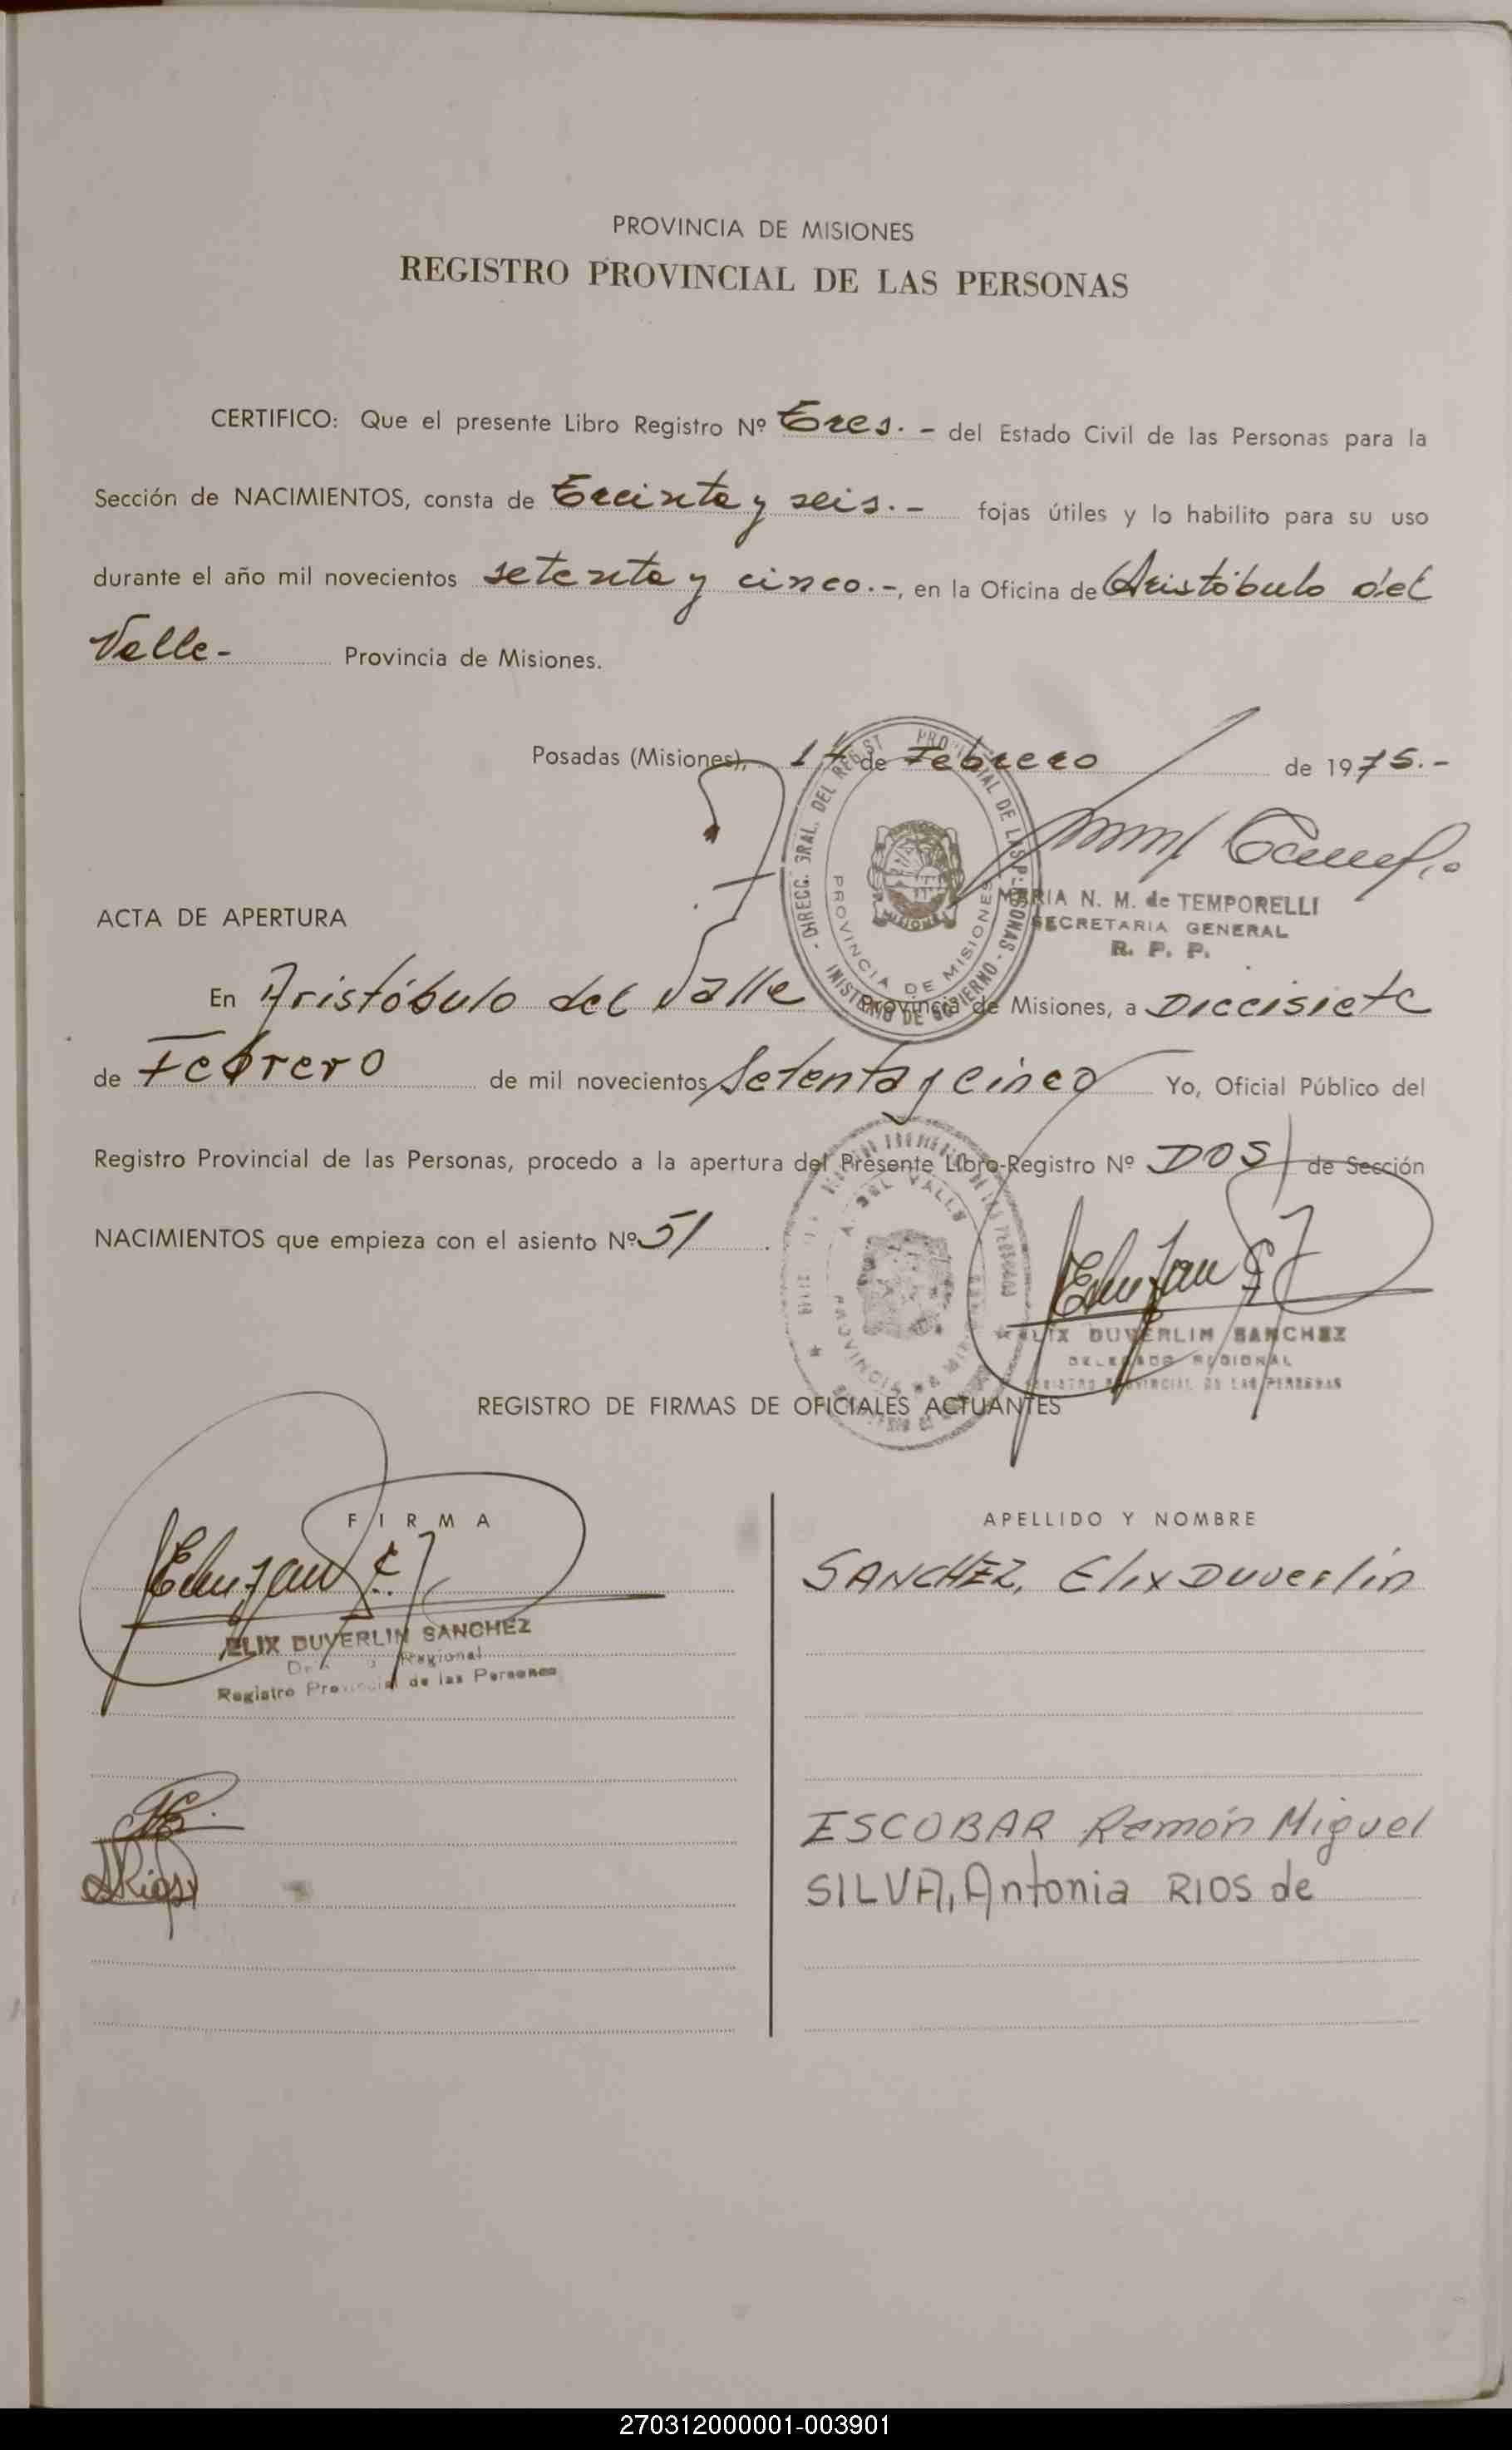 PROVINCIA DE MISIONES
REGISTRO PROVINCIAL DE LAS PERSONAS
CERTIFICO: Que el presente Libro Registro Nº Tres. - del Estado Civil de las Personas para la
Sección de NACIMIENTOS, consta de Treinta y seis. - fojas útiles y lo habilito para su uso
durante el año mil novecientos setenta y cinco. -, en la Oficina de Aristóbulo del
Valle - Provincia de Misiones.
Posadas (Misiones), 14 de Febrero de 1975. -
DIRECC. GRAL. DEL REGIST PROVINCIAL DE LAS PERSONAS - MINISTERIO DE GOBIERNO -
PROVINCIA DE MISIONES
MARIA N. M. de TEMPORELLI
SECRETARIA GENERAL
R. P. P.
ACTA DE APERTURA
En Aristóbulo del Valle Provincia de Misiones, a Diecisiete
de Febrero de mil novecientos Setenta y cinco Yo, Oficial Público del
Registro Provincial de las Personas, procedo a la apertura del Presente Libro-Registro Nº DOS de Sección
NACIMIENTOS que empieza con el asiento Nº 51
A. DEL VALLE
ELIX DUVERLIN SANCHEZ
DELEGADO REGIONAL
REGISTRO PROVINCIAL DE LAS PERSONAS
REGISTRO DE FIRMAS DE OFICIALES ACTUANTES
FIRMA
APELLIDO Y NOMBRE
SANCHEZ, Elix Duverlin
ELIX DUVERLIN SANCHEZ
Regional
Registro Provincial de las Personas
ESCOBAR Ramón Miguel
ARios
SILVA, Antonia RIOS de
270312000001-003901